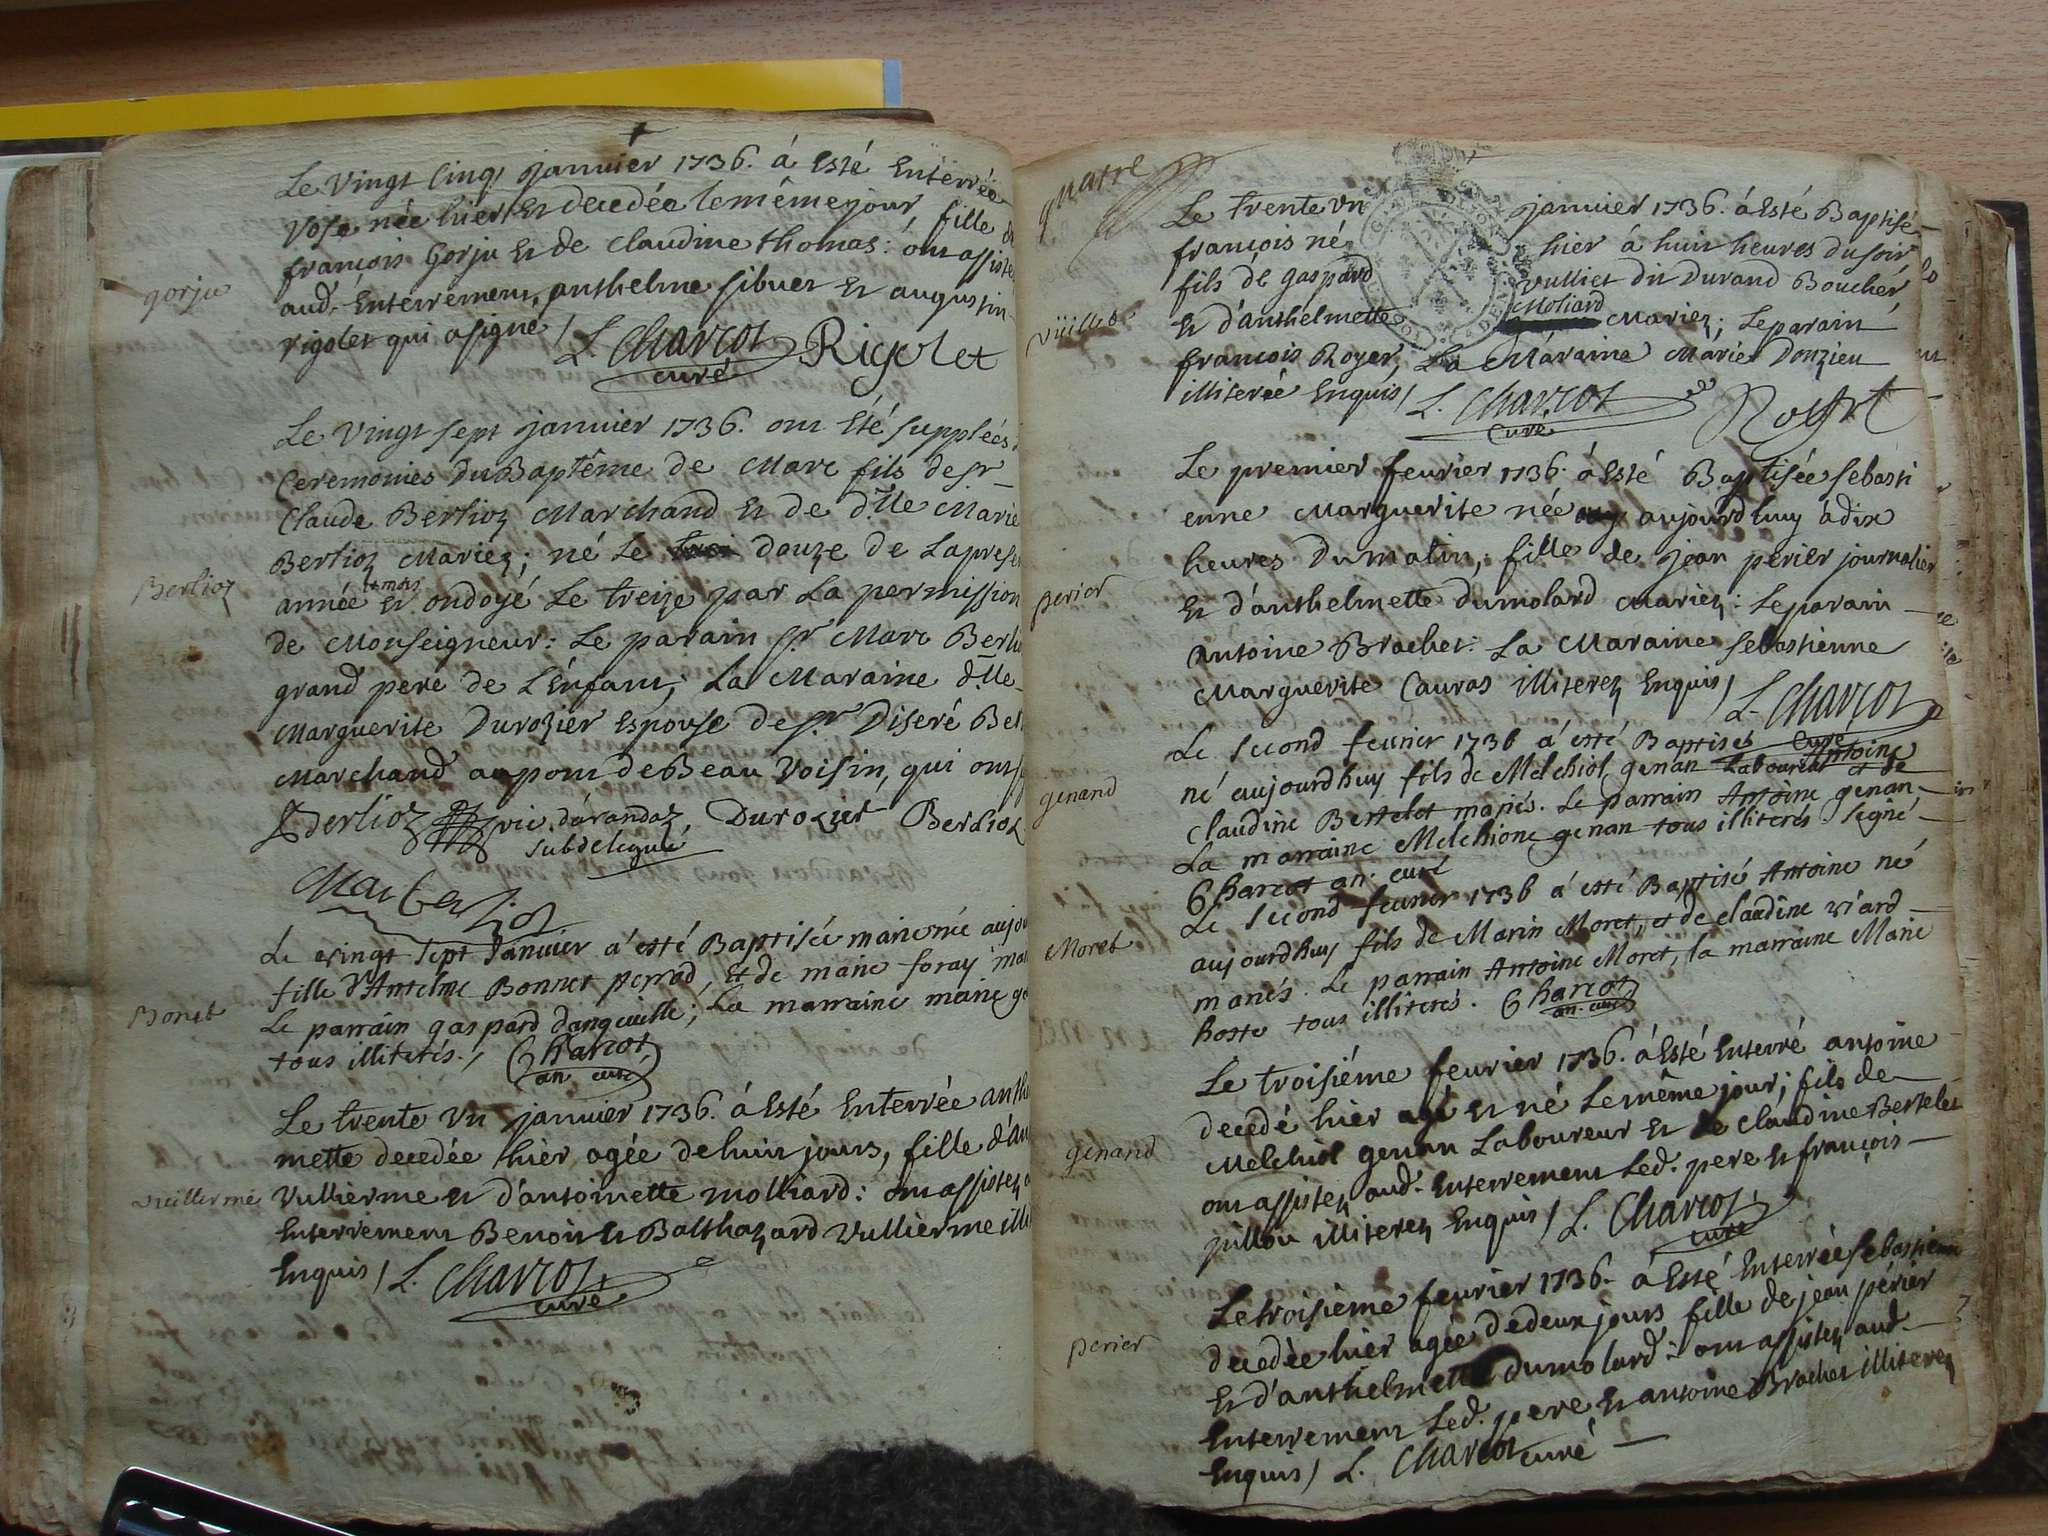 Le Vingt Cinq janvier 1736. á Esté Enterrée
Vose née hier et decedée le même jour, fille de
gorju
françois Gorju et de Claudine thomas: ont assisté
aud. Enterrement, anthelme sibuet et augustin
rigolet qui a signé / L. Charcot Rigolet
curé
Le Vingt sept janvier 1736. ont Eté supplées
Ceremonies Du Baptême de Marc fils de sr
Claude Berlioz Marchand et de d.lle Marie
Berlioz Mariez; né le douze de la prese
Berlioz
année et mois et ondoyé Le treize par La permission
de Monseigneur: Le parain sr. Marc Berli
grand pere de L'Enfant, La Maraine d.lle
Marguerite Durozier Espouse de sr. Diseré Ber
Marchand au pont de Beau Voisin, qui ont
Berlioz vic. d'arandaz, Durozier Berlioz
subdelegué
Marc berlioz
Le vingt sept Janvier a' esté Baptisée marie née aujou
fille d'Antelme Bonnet perrod, et de marie foray ma
Bonet
Le parrain gaspard dangeville; La marraine marie
tous illiterés./ Charcot
an. curé
Le trente Un janvier 1736. á Esté Enterrée anth
mette decedée hier agée de huit jours, fille d'an
vuillermé
Vullierme et d'antoinette molliard: ont assistez
Enterrement Benoit et Balthazard Vullierme ill
Enquis / L. Charcot
curé
quatre
Le trente Un janvier 1736. á Esté Baptisé
françois né hier á huit heures du soir
fils de gaspard vulliet dit Durand Boucher
Moliard
et d'anthelmette Mariez; Le parain
françois Royer, La Maraine Marie Donzieu
illiterée Enquis / L. Charcot
curé
Le premier fevrier 1736. á Esté Baptisée sebasti
enne Marguerite née aujourdhuy á dix
heures Du matin, fille de jean perier journalier
perier
et d'anthelmette Dumolard Mariez: Le parain
antoine Brachet: La Maraine sebastienne
Marguerite Cauras illiterez Enquis / L. Charcot
curé
Le second fevrier 1736 a' esté Baptisé Antoine
né aujourdhuy fils de Melchiol genan Laboureur et de
genand
claudine Bertelet mariés. Le parrain Antoine genan
La marraine Melchione genan tous illiterés. signé
Charcot an. curé
Le second fevrier 1736 a' esté Baptisé Antoine né
aujourdhuy fils de Marin Moret, et de claudine riard
Moret
mariés. Le parrain Antoine Moret, la marraine Marie
hoste tous illiterés. Charcot
an. curé
Le troisiéme fevrier 1736. á Esté Enterré antoine
decedé hier et né Le même jour; fils de
genand
Melchiol genan Laboureur et de claudine Bertelet
ont assistez aud. Enterrement Led. pere et françois
pillou illiterez Enquis / L. Charcot
curé
Le troisiéme fevrier 1736. á Esté Enterrée sebastienne
decedée hier agée de deux jours fille de jean périer
perier
et d'anthelmette Dumolard: ont assistez aud.
Enterrement Led. pere et antoine Brachet illiterez
Enquis / L. Charcot curé